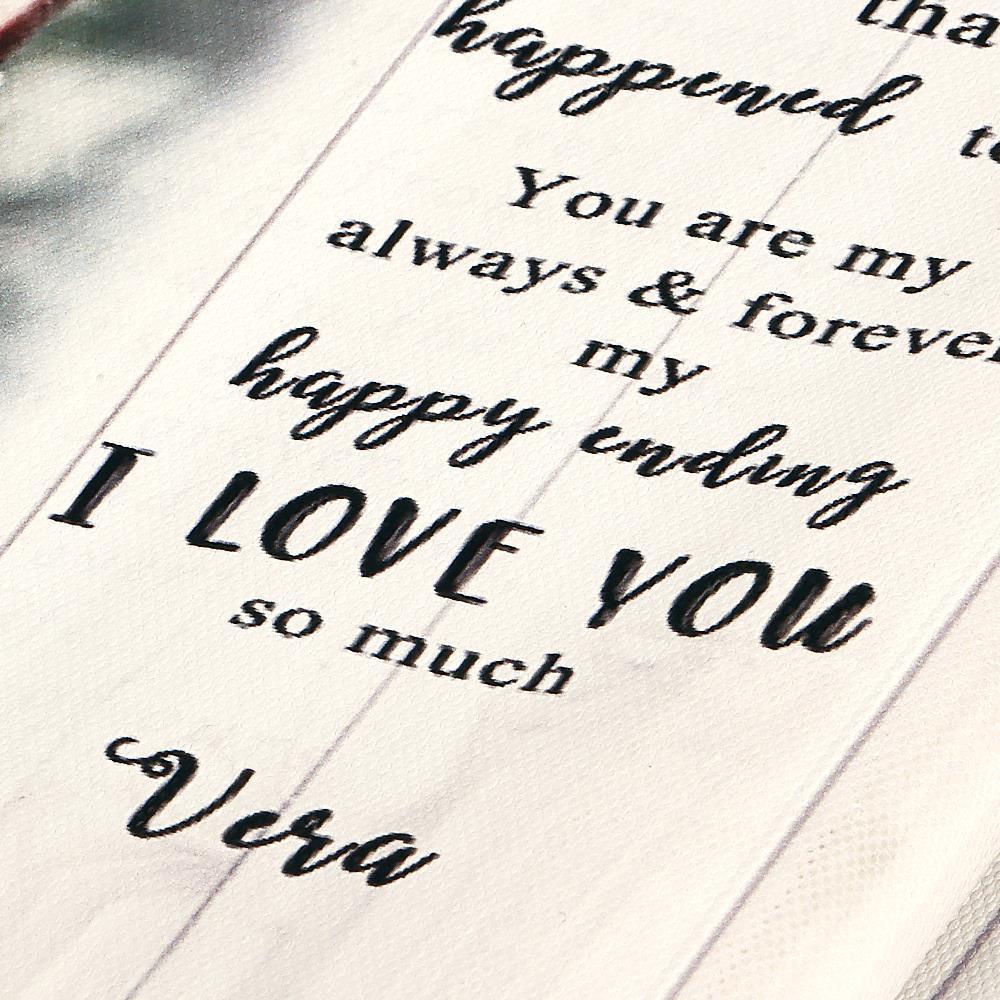 happened
You are my
always & forever
my
happy ending
I LOVE YOU
so much
Vera